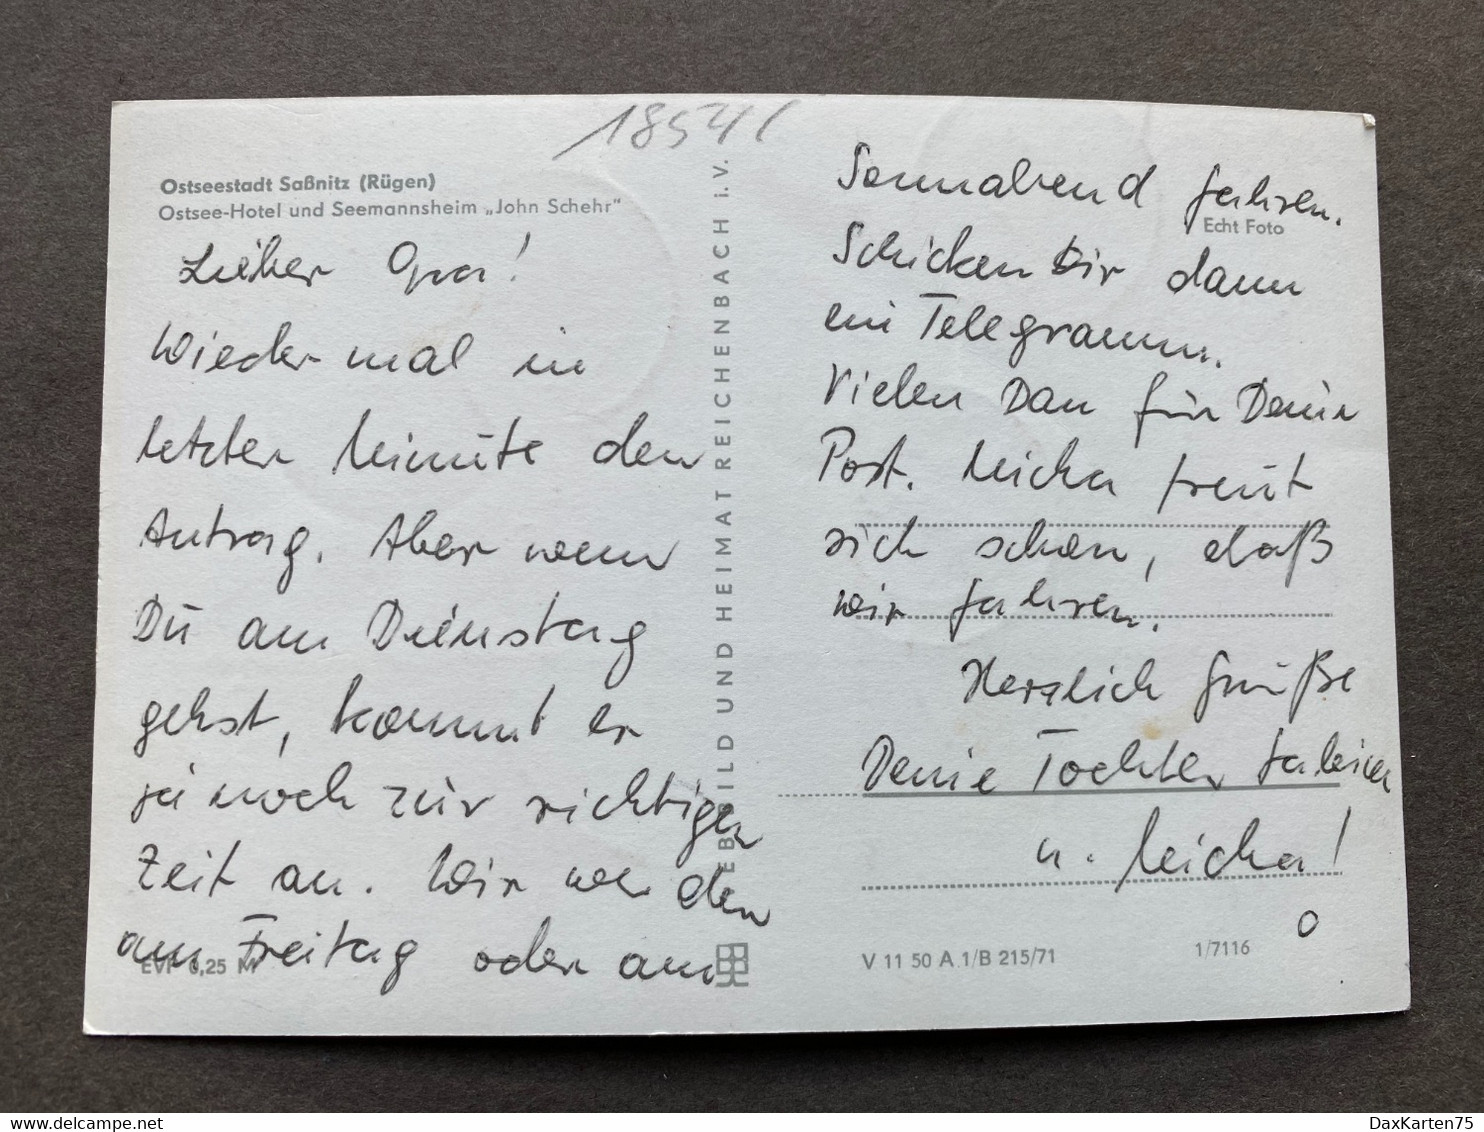 18541
Ostseestadt Saßnitz (Rügen)
Ostsee-Hotel und Seemannsheim „John Schehr"
Lieber Opa!
Wieder mal in
letzter Minute den
Antrag. Aber wenn
Du am Dienstag
gehst, kommt er
ja noch zur richtigen
Zeit an. Wir werden
am Freitag oder am
EVP 0,25 M
BILD UND HEIMAT REICHENBACH i. V.
Sonnabend fahren.
Echt Foto
Schicken Dir dann
ein Telegramm.
Vielen Dan für Deine
Post. Meicha freut
sich schon, daß
wir fahren.
Herzlich Grüße
Deine Tochter
u. Meicha!
V 11 50 A 1/B 215/71
1/7116
DaxKarten75